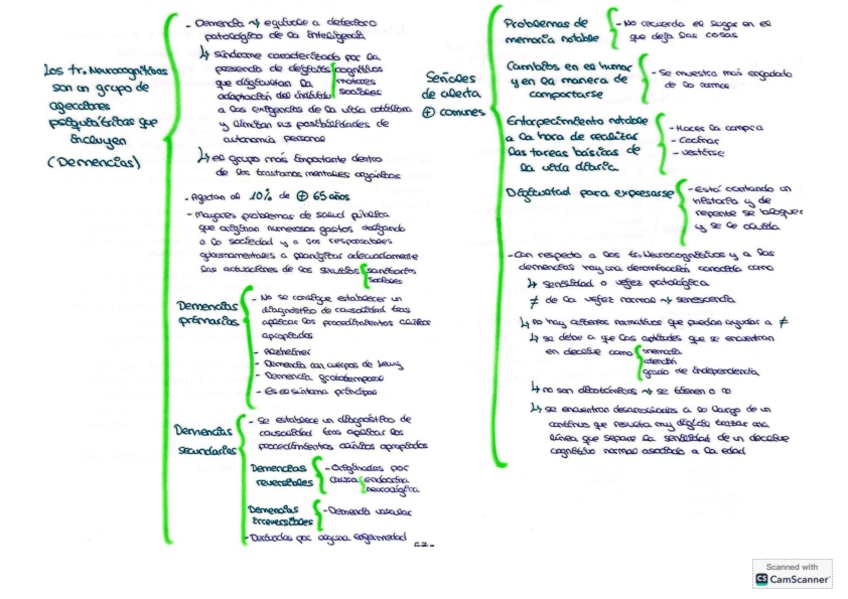 Los tr. Neurocognitivos
son un grupo de
afecciones
psiquiátricas que
incluyen
(Demencias)
- Demencia ⇝ equivale a deterioro
patológico de la inteligencia
↳ síndrome caracterizado por la
presencia de déficits cognitivos
motores
sociales
que dificultan la
adaptación del individuo
a las exigencias de la vida cotidiana
y limitan sus posibilidades de
autonomía personal
↳ es grupo más importante dentro
de los trastornos mentales orgánicos
- Afectan al 10% de ⊕ 65 años
- Mayores problemas de salud pública
que originan numerosos gastos obligando
a la sociedad y a los responsables
gubernamentales a planificar adecuadamente
las actuaciones de los servicios sanitarios
sociales
Demencias
primarias
- No se consigue establecer un
diagnóstico de causalidad tras
aplicar los procedimientos clínicos
apropiados
- Alzheimer
- Demencia con cuerpos de Lewy
- Demencia frontotemporal
- Es el síntoma principal
Demencias
secundarias
- Se establece un diagnóstico de
causalidad tras aplicar los
procedimientos clínicos apropiados
Demencias
reversibles
- Originadas por
causa endocrina
neurológica
Demencias
Irreversibles
- Demencia vascular
- Derivadas por alguna enfermedad
Señales
de alerta
⊕ comunes
Problemas de
memoria notable
- No recuerda el lugar en el
que deja las cosas
Cambios en el humor
y en la manera de
comportarse
- Se muestra más enfadado
de lo normal
Entorpecimiento notable
a la hora de realizar
las tareas básicas de
la vida diaria.
- Hacer la compra
- Cocinar
- Vestirse
Dificultad para expresarse
- Está contando un
historia y de
repente se bloquea
y se le olvida
- Con respecto a los tr. Neurocognitivos y a las
demencias hay una denominación conocida como
↳ senilidad o vejez patológica
≠ de la vejez normal ⇝ senescencia
↳ no hay criterios normativos que puedan ayudar a ≠
↳ se debe a que las aptitudes que se encuentran
en declive como memoria
atención
grado de independencia
↳ no son dicotómicas ⇝ se tienen o no
↳ se encuentran desarrolladas a lo largo de un
continuo que resulta muy difícil trazar una
línea que separe la senilidad de un declive
cognitivo normal asociado a la edad
Scanned with
CS CamScanner